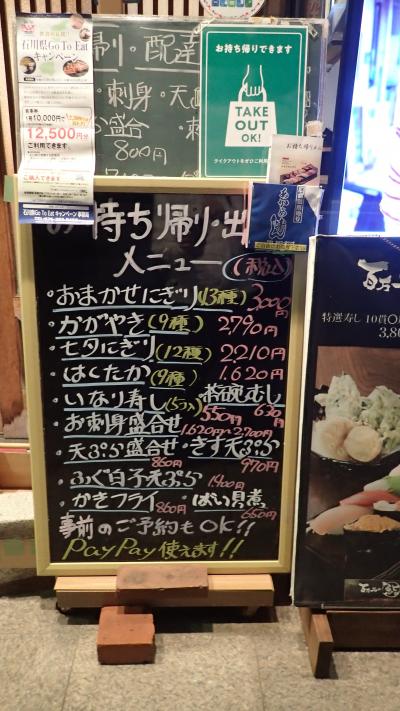 石川県Go To Eat
キャンペーン
1冊10,000円で
12,500円分
ご利用できます
ご購入できます
石川県Go To Eat キャンペーン 事務局
帰り・配達
・刺身・天
盛合
800円
お持ち帰りできます
TAKE
OUT
OK!
テイクアウトをぜひご利用
お持ち帰り・出
メニュー (税込)
・おまかせにぎり(13種) 3,000円
・かがやき(9種) 2,790円
・七夕にぎり(12種) 2,210円
・はくたか(9種) 1,620円
・いなり寿し(5コ入) 550円 ・茶碗むし 630円
・お刺身盛合せ 1,620〜2,700円
・天ぷら盛合せ 860円 ・きす天ぷら 970円
・ふぐ白子天ぷら 1,400円
・かきフライ 860円 ・ばい貝煮 650円
事前のご予約もOK!!
PayPay使えます!!
百万
特選寿し 10貫
3,8